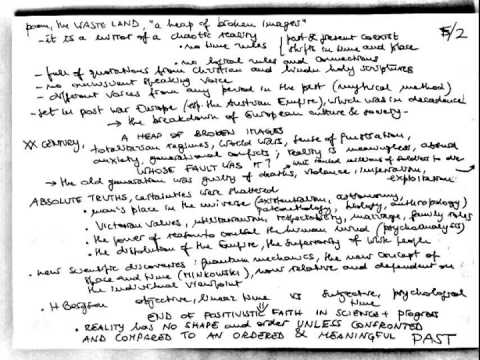 poem, the WASTE LAND, "a heap of broken images" 5/2
- it is a mirror of a chaotic reality
• no time rules { past & present coexist
shifts in time and place
• no logical rules and connections
- full of quotations from Christian and hindu holy scriptures
- no omniscient speaking voice
- different voices from any period in the past (mythical method)
- set in post war Europe (esp. the Austrian Empire), which was in decadence
→ the breakdown of European culture & society -
A HEAP OF BROKEN IMAGES
XX CENTURY, totalitarian regimes, World Wars, sense of frustration,
anxiety, generational conflicts; reality is meaningless, absurd
WHOSE FAULT WAS IT? millions of soldiers to die
→ the old generation was guilty of deaths, violence, imperialism, exploitation
ABSOLUTE TRUTHS, certainties were shattered
• man's place in the universe (evolutionism, astronomy,
biology, anthropology)
• Victorian values, utilitarianism, respectability, marriage, family roles
• the power of reason to control the human mind (psychoanalysis)
• the dissolution of the Empire, the superiority of white people
• new scientific discoveries: quantum mechanics, the new concept of
space and time (MINKOWSKI), now relative and dependent on
the individual viewpoint
• H Bergson objective, linear time vs subjective, psychological
time
END OF POSITIVISTIC FAITH IN SCIENCE + progress
• REALITY HAS NO SHAPE and order UNLESS CONFRONTED
AND COMPARED TO AN ORDERED & MEANINGFUL PAST